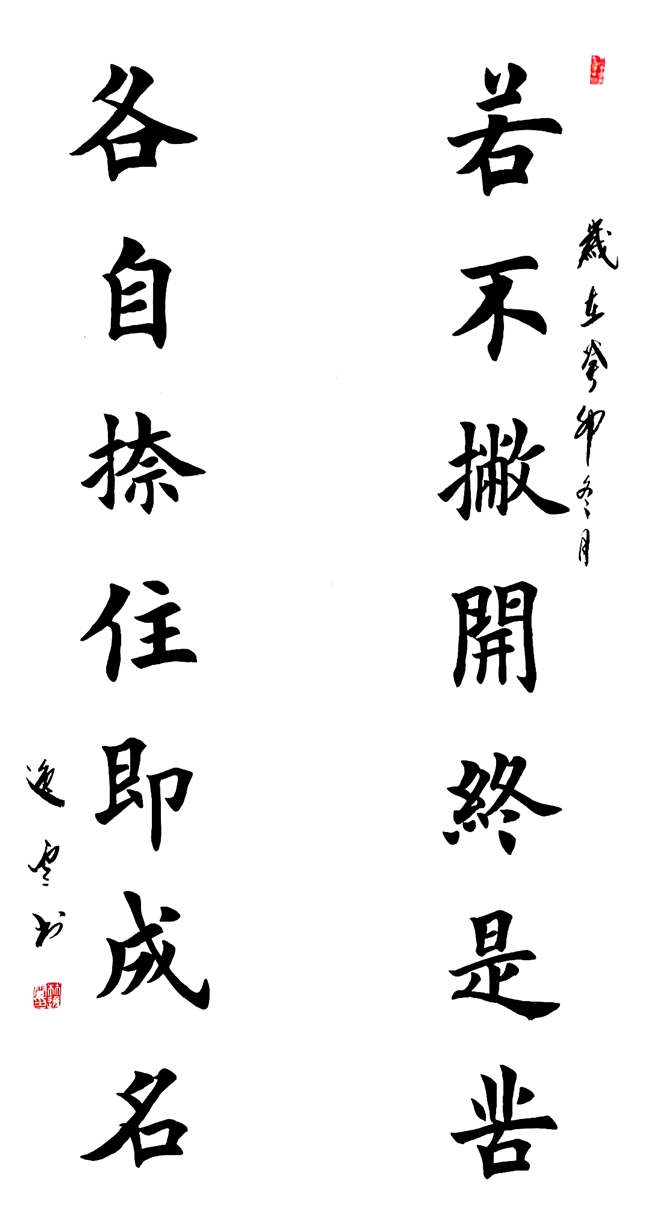 歲在癸卯冬月
若不撇開終是苦
各自捺住即成名
逸雲书